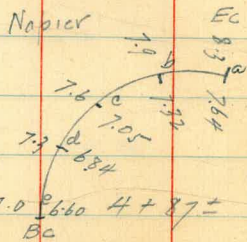 Napier
EC
8.3 a 7.64
7.9 b 7.32
7.6 c 7.05
7.3 d 6.84
7.0 e 6.60
4 + 87 ±
BC